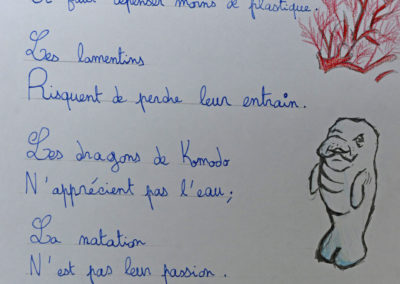 faut dépenser moins de plastique.
Les lamentins
Risquent de perdre leur entrain.
Les dragons de Komodo
N'apprécient pas l'eau;
La natation
N'est pas leur passion.